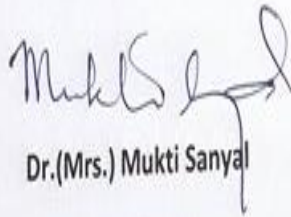 Mukti Sanyal
Dr.(Mrs.) Mukti Sanyal